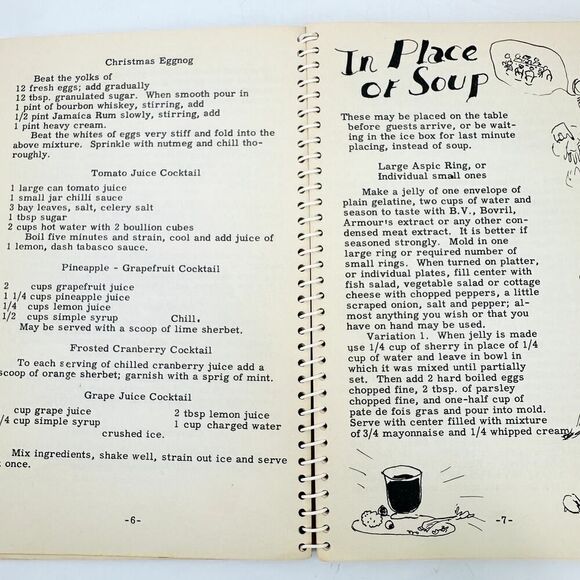 Christmas Eggnog
Beat the yolks of
12 fresh eggs; add gradually
12 tbsp. granulated sugar. When smooth pour in
1 pint of bourbon whiskey, stirring, add
1/2 pint Jamaica Rum slowly, stirring, add
1 pint heavy cream.
Beat the whites of eggs very stiff and fold into the
above mixture. Sprinkle with nutmeg and chill tho-
roughly.
Tomato Juice Cocktail
1 large can tomato juice
1 small jar chilli sauce
3 bay leaves, salt, celery salt
1 tbsp sugar
2 cups hot water with 2 boullion cubes
Boil five minutes and strain, cool and add juice of
1 lemon, dash tabasco sauce.
Pineapple - Grapefruit Cocktail
2 cups grapefruit juice
1 1/4 cups pineapple juice
1/4 cups lemon juice
1/2 cups simple syrup Chill.
May be served with a scoop of lime sherbet.
Frosted Cranberry Cocktail
To each serving of chilled cranberry juice add a
scoop of orange sherbet; garnish with a sprig of mint.
Grape Juice Cocktail
cup grape juice 2 tbsp lemon juice
/4 cup simple syrup 1 cup charged water
crushed ice.
Mix ingredients, shake well, strain out ice and serve
once.
-6-
In Place
of Soup
These may be placed on the table
before guests arrive, or be wait-
ing in the ice box for last minute
placing, instead of soup.
Large Aspic Ring, or
Individual small ones
Make a jelly of one envelope of
plain gelatine, two cups of water and
season to taste with B.V., Bovril,
Armour's extract or any other con-
densed meat extract. It is better if
seasoned strongly. Mold in one
large ring or required number of
small rings. When turned on platter,
or individual plates, fill center with
fish salad, vegetable salad or cottage
cheese with chopped peppers, a little
scraped onion, salt and pepper; al-
most anything you wish or that you
have on hand may be used.
Variation 1. When jelly is made
use 1/4 cup of sherry in place of 1/4
cup of water and leave in bowl in
which it was mixed until partially
set. Then add 2 hard boiled eggs
chopped fine, 2 tbsp. of parsley
chopped fine, and one-half cup of
pate de fois gras and pour into mold.
Serve with center filled with mixture
of 3/4 mayonnaise and 1/4 whipped cream.
-7-